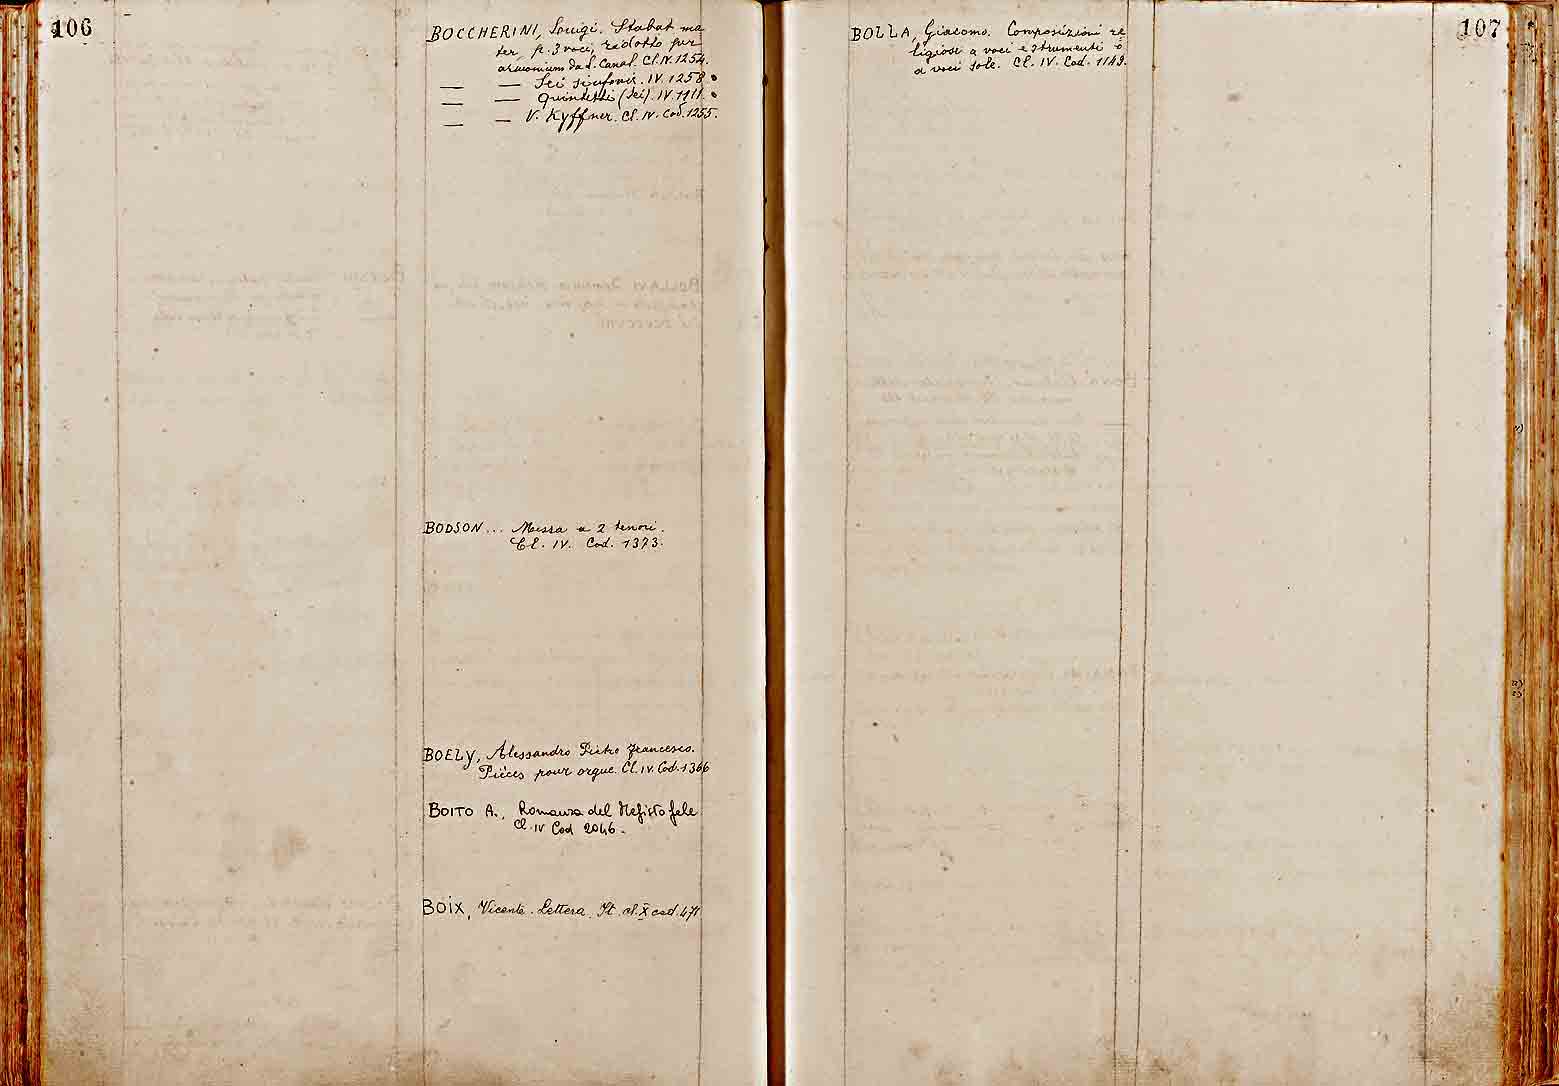 106
BOCCHERINI, Luigi. Stabat ma
ter, p. 3 voci, ridotto per
armonium da P. Canal. Cl. IV. 1254.
— — Sei sinfonie. IV. 1258
— — Quintetti (sei). IV. 1111
— — V. Kyffner. Cl. IV. Cod. 1255.
BODSON... Messa a 2 tenori.
Cl. IV. Cod. 1373.
BOELY, Alessandro Pietro Francesco.
Pièces pour orgue. Cl. IV. Cod. 1366
BOITO A., Romanza del Mefistofele
Cl. IV Cod 2046.
BOIX, Vicente. Lettera. It. cl. X cod. 471
107
BOLLA, Giacomo. Composizioni re
ligiose a voci e strumenti o
a voci sole. Cl. IV. Cod. 1149.